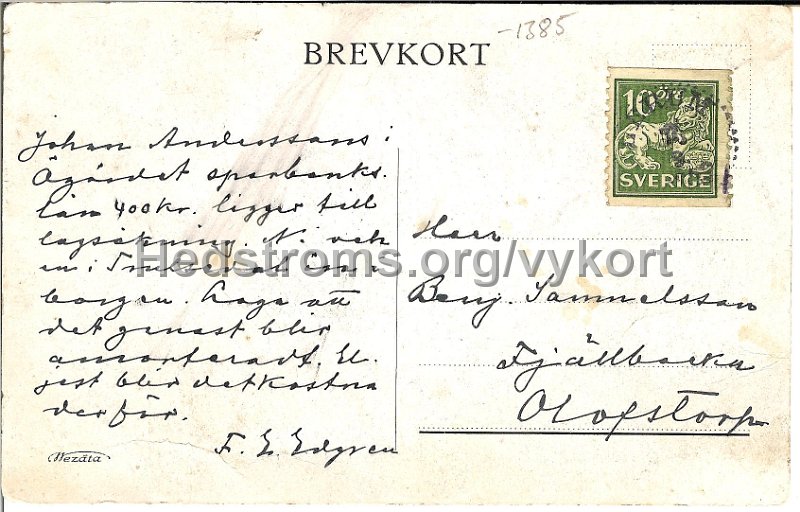 -1385
BREVKORT
10 ÖRE
SVERIGE
Johan Anderssons i
Ögärdet sparbanks.
lån 400 kr. ligger till
lagsökning. Ni och
en i
borgen. Laga att
det genast blir
amorteradt. El-
jest blir det kostna
der för.
F. E. Edgren
Herr
Benj. Samuelsson
Fjällbacka
Olofstorp
Hedstroms.org/vykort
Wezäta